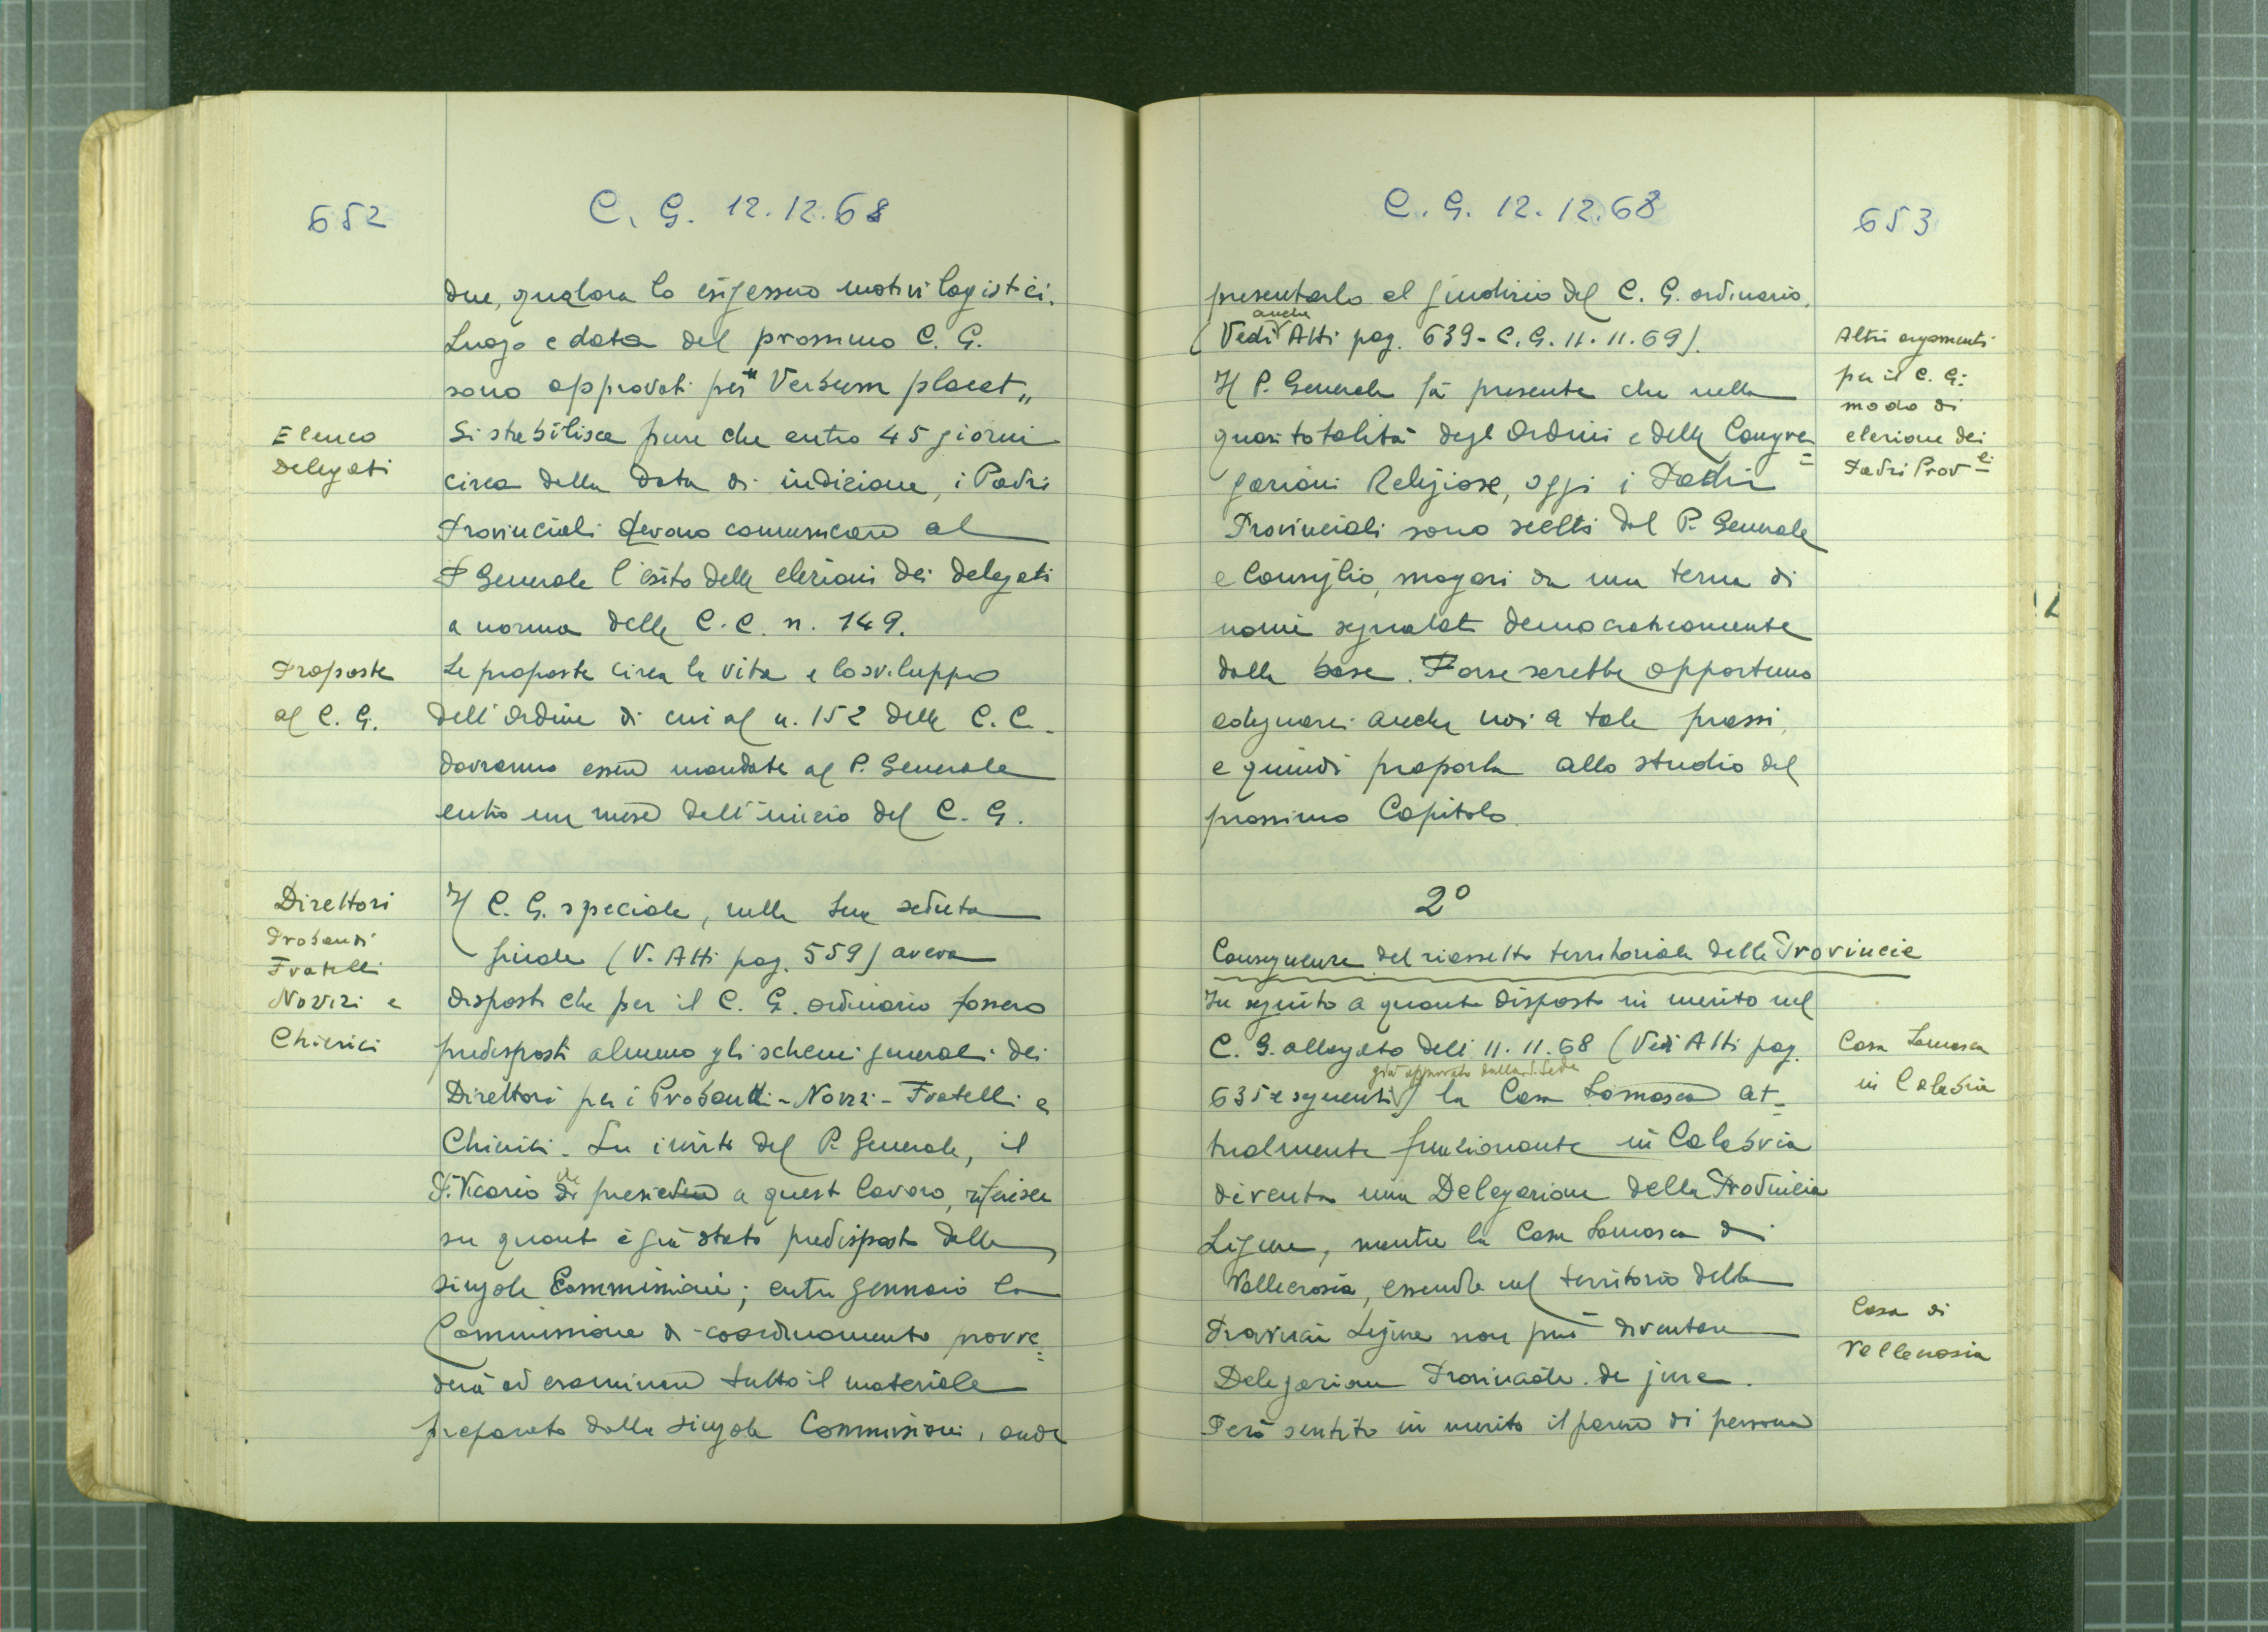 652
C. G. 12.12.68
due, qualora lo esigessero motivi logistici.
Luogo e data del prossimo C. G.
sono approvati per "Verbum placet„
Elenco
Delegati
Si stabilisce pure che entro 45 giorni
circa della data di indizione, i Padri
Provinciali devono comunicare al
P Generale l'esito delle elezioni dei delegati
a norma delle C.C. n. 149.
Proposte
al C. G.
Le proposte circa la vita e lo sviluppo
dell'Ordine di cui al n. 152 delle C.C.
dovranno essere mandate al P. Generale
entro un mese dell'inizio del C. G.
Direttori
Probandi
Fratelli
Novizi e
Chierici
Il C. G. speciale, nella sua seduta
finale (V. Atti pag. 559) aveva
disposto che per il C. G. ordinario fossero
predisposti almeno gli schemi generali dei
Direttori per i Probandi - Novizi - Fratelli e
Chierici. Su invito del P. Generale, il
P. Vicario che presiede a questo lavoro, riferisce
su quanto è già stato predisposto dalle
singole Commissioni; entro gennaio la
Commissione di coordinamento provve=
derà ad esaminare tutto il materiale
preparato dalle singole Commissioni, onde
C. G. 12.12.68
653
presentarlo al giudizio del C. G. ordinario.
(Vedi anche Atti pag. 639 - C. G. 11.11.69).
Altri argomenti
per il C. G:
modo di
elezione dei
Padri Prov.li
Il P. Generale fa presente che nella
quasi totalità degli Ordini e delle Congre=
gazioni Religiose, oggi i Padri
Provinciali sono scelti dal P. Generale
e Consiglio, magari da una terna di
nomi segnalati democraticamente
dalla base. Forse sarebbe opportuno
adeguarci anche noi a tale prassi,
e quindi proporla allo studio del
prossimo Capitolo.
2º
Conseguenze del riassetto territoriale delle Provincie
In seguito a quanto disposto in merito nel
C. G. allargato dell'11.11.68 (Vedi Atti pag.
635 e seguenti già approvato dalla S. Sede) la Casa Somasca at=
tualmente funzionante in Calabria
diventa una Delegazione della Provincia
Ligure, mentre la Casa Somasca di
Vallecrosia, essendo nel territorio della
Provincia Ligure non può diventare
Delegazione Provinciale de jure.
Però sentito in merito il parere di persone
Casa Somasca
in Calabria
Casa di
Vallecrosia